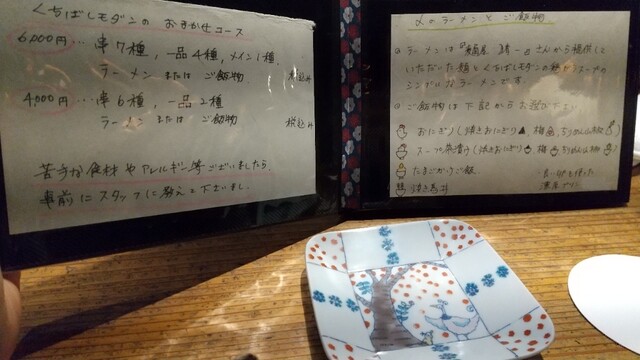 くちばしモダンの おまかせコース
6,000円… 串7種, 一品4種, メイン1種,
ラーメン または ご飯物 税込み
4,000円… 串6種, 一品2種
ラーメン または ご飯物 税込み
苦手な食材やアレルギー等ございましたら,
事前にスタッフに教えて下さいまし。
〆のラーメンと ご飯物
ラーメンは さんから提供して
いただいた麺とくちばしモダンの スープの
シンプルなラーメンです
ご飯物は下記からお選び下さい
おにぎり(焼きおにぎり 梅 ちりめん山椒)
スープ茶漬け(焼きおにぎり 梅 ちりめん山椒)
たまごかけご飯